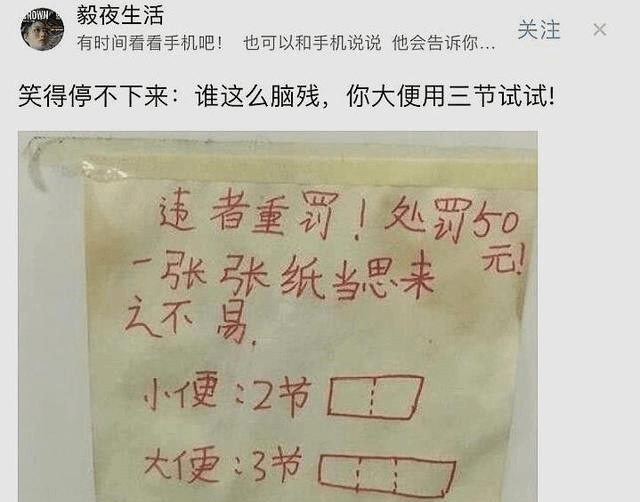 毅夜生活
有时间看看手机吧! 也可以和手机说说 他会告诉你...
关注
笑得停不下来:谁这么脑残,你大便用三节试试!
违者重罚!处罚50
元!
一张张纸当思来
之不易.
小便:2节
大便:3节